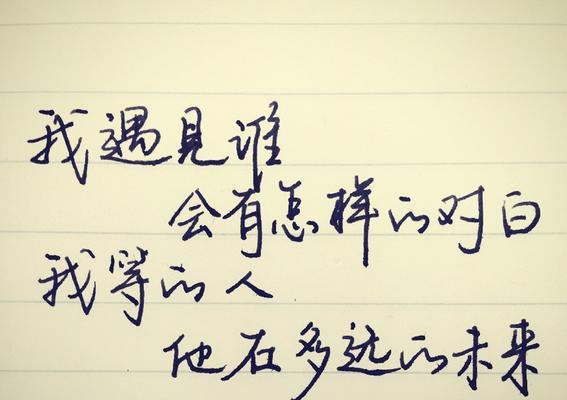 我遇見谁
会有怎样的对白
我等的人
他在多远的未来